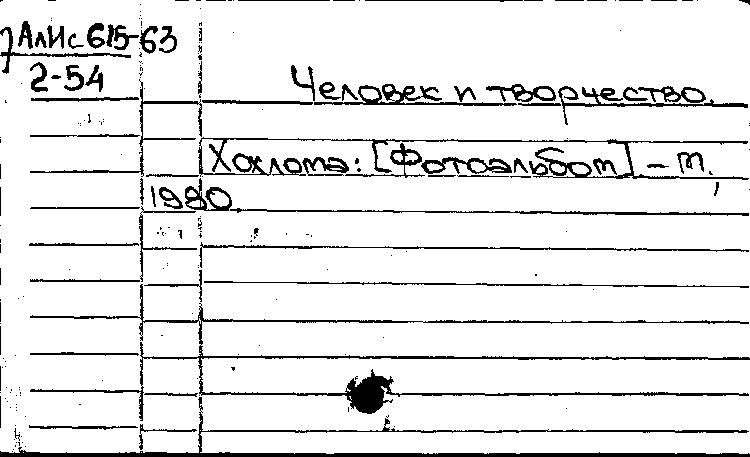 АлИс615-63
2-54
Человек и творчество.
Хохлома: [Фотоальбом] – m.,
1980.